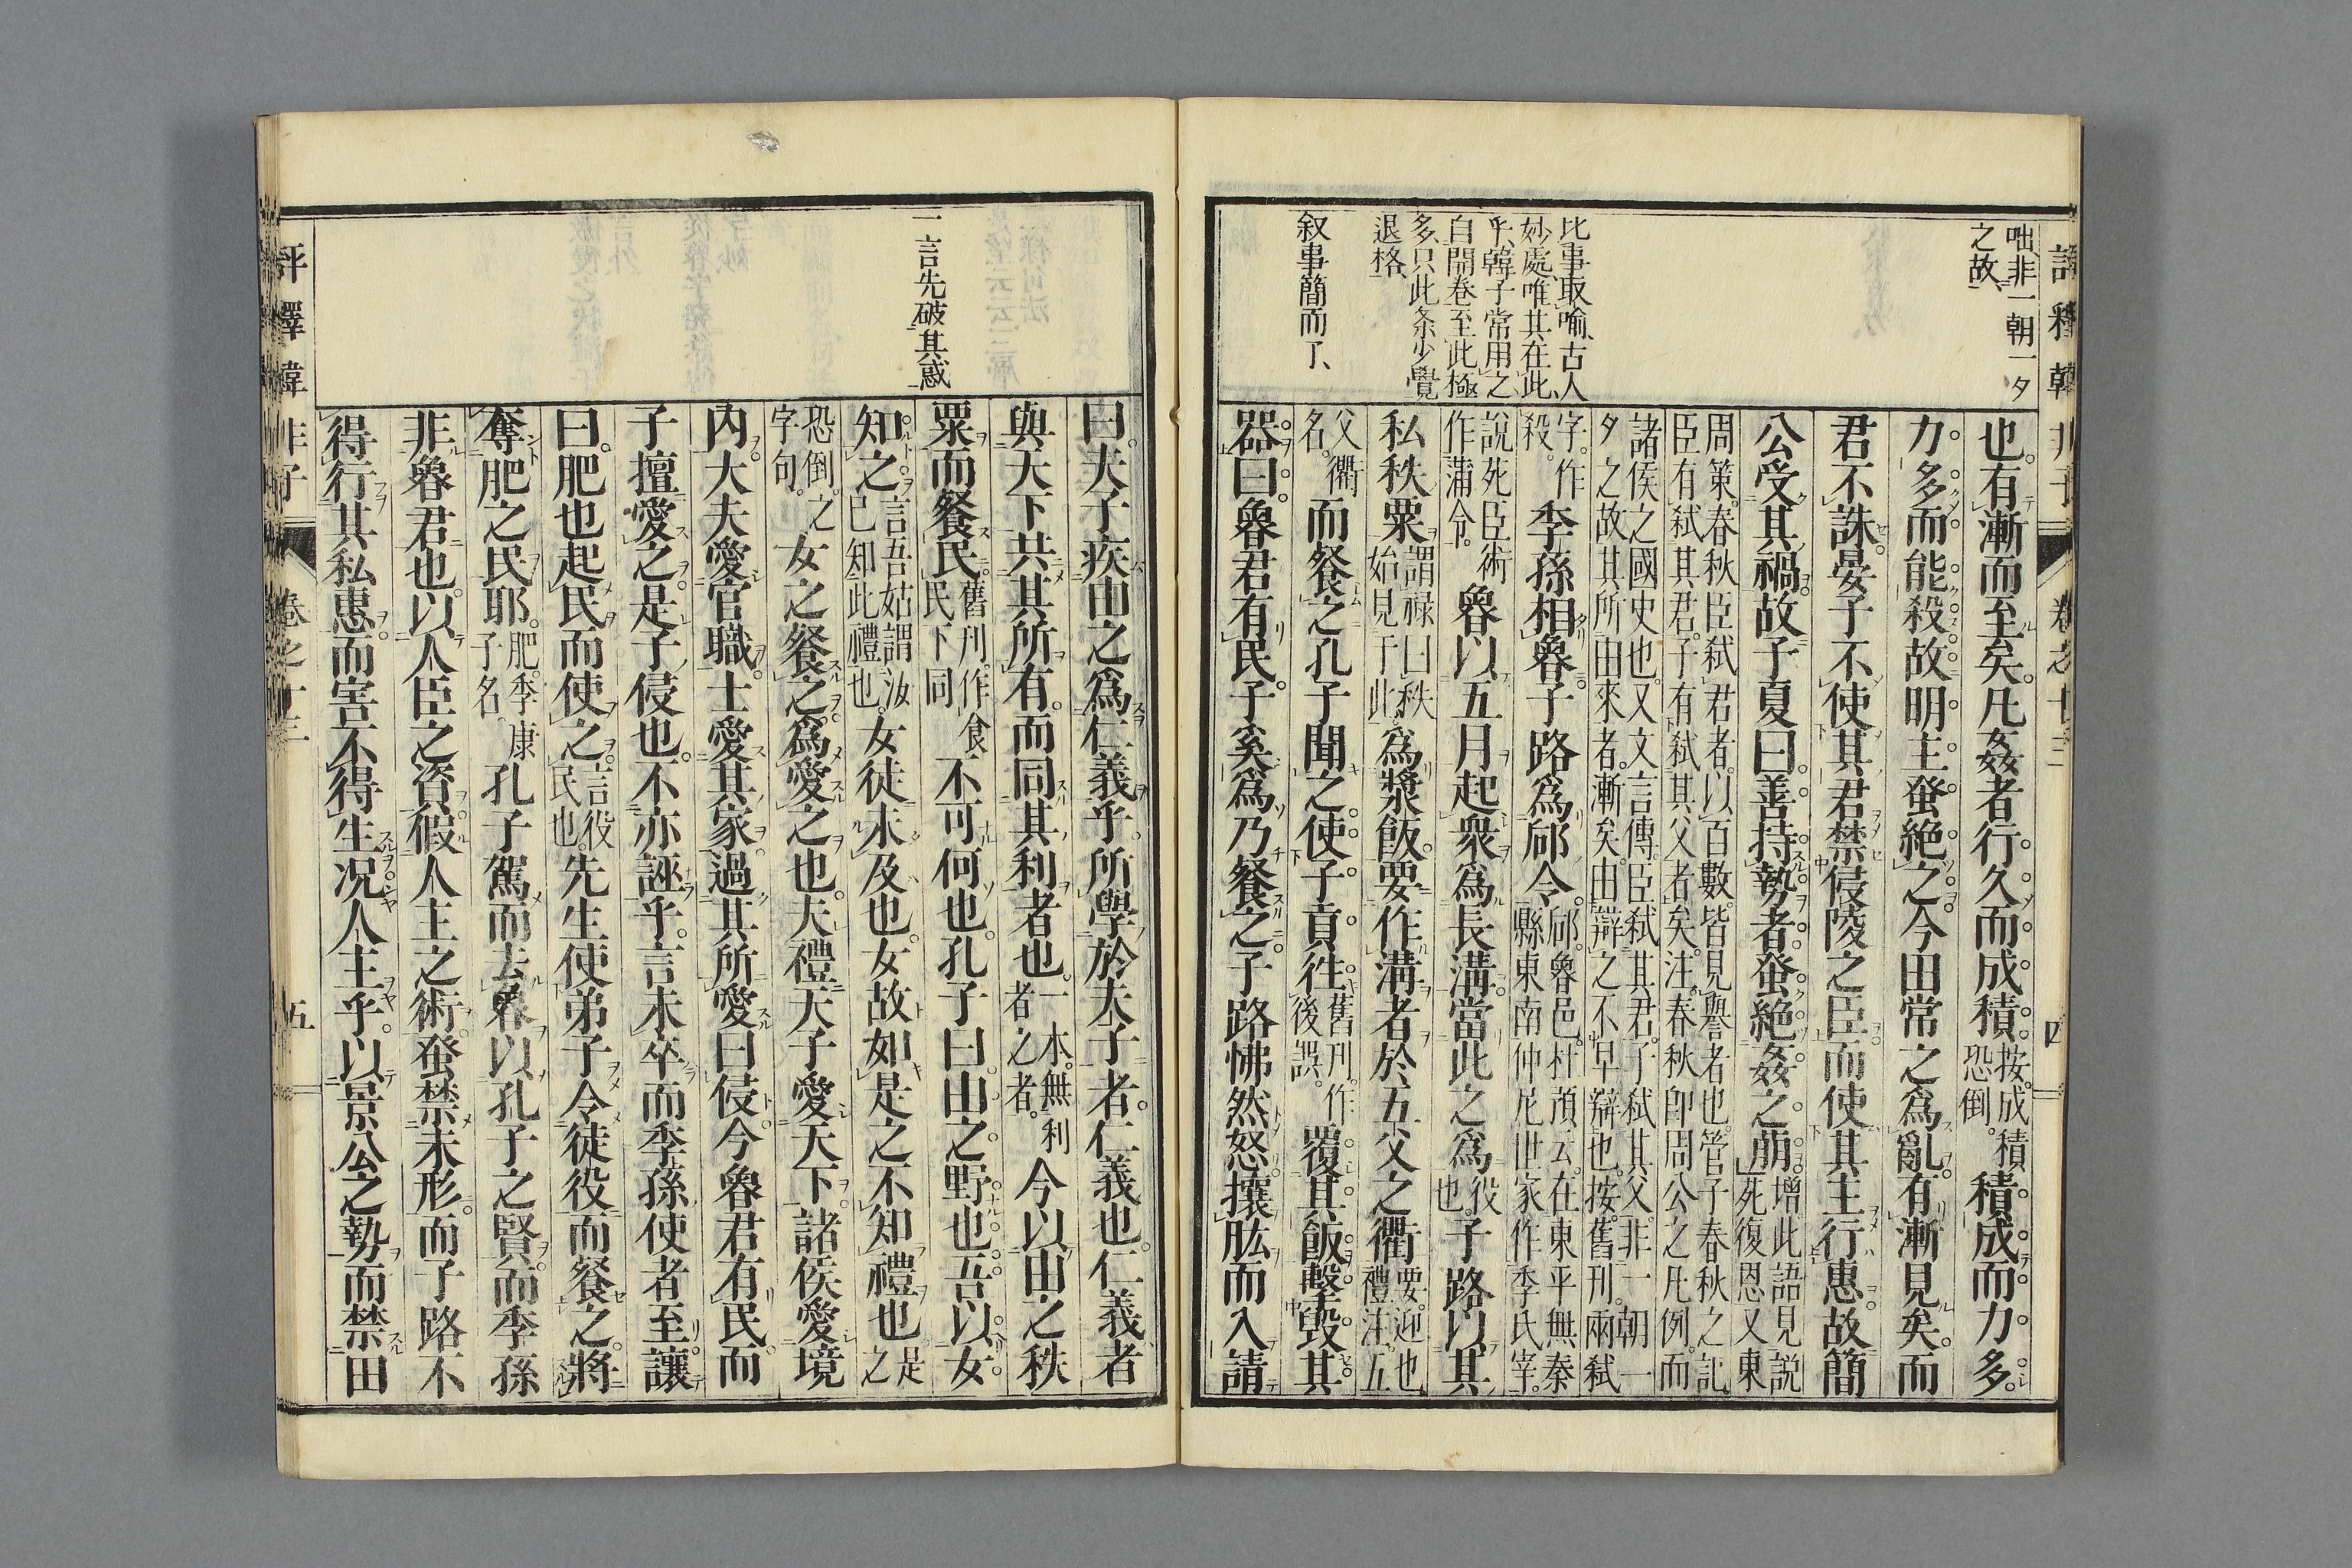 評釋韓非子 卷之十三 四
咄非一朝一夕
之故
比事取喻古人
妙處唯其在此
乎韓子常用之
自開卷至此極
多只此条少覺
退格
叙事簡而了
也有漸而至矣凡姦者行久而成積按成積恐倒積成而力多
力多而能殺故明主蚤絶之今田常之爲亂有漸見矣而
君不誅晏子不使其君禁侵陵之臣而使其主行惠故簡
公受其禍故子夏曰善持勢者蚤絶姦之萠增此語見説死復恩又東
周策春秋臣弑君者以百數皆見譽者也管子春秋之記
臣有弑其君子有弑其父者矣注春秋卽周公之凡例而
諸侯之國史也又文言傳臣弑其君子弑其父非一朝一
夕之故其所由來者漸矣由辯之不早辯也按舊刊兩弑
字作殺季孫相魯子路爲郈令郈魯邑杜預云在東平無秦縣東南仲尼世家作季氏宰
説死臣術作蒲令魯以五月起衆爲長溝當此之爲役也子路以其
私秩粟謂禄曰秩始見于此爲漿飯要作溝者於五父之衢要迎也禮注五
父衢名而餐之孔子聞之使子貢往舊刊作後誤覆其飯擊毀其
器曰魯君有民子奚爲乃餐之子路怫然怒攘肱而入請
一言先破其惑
曰夫子疾由之爲仁義乎所學於夫子者仁義也仁義者
與天下共其所有而同其利者也一本無利者之者今以由之秩
粟而餐民舊刊作食民下同不可何也孔子曰由之野也吾以女
知之言吾姑謂汝已知此禮也女徒未及也女故如是之不知禮也是之
恐倒之字句女之餐之爲愛之也夫禮天子愛天下諸侯愛境
内大夫愛官職士愛其家過其所愛曰侵今魯君有民而
子擅愛之是子侵也不亦誣乎言未卒而季孫使者至讓
曰肥也起民而使之言役民也先生使弟子令徒役而餐之將
奪肥之民耶肥季康子名孔子駕而去魯以孔子之賢而季孫
非魯君也以人臣之資假人主之術蚤禁未形而子路不
得行其私惠而害不得生况人主乎以景公之勢而禁田
評釋韓非子 卷之十三 五